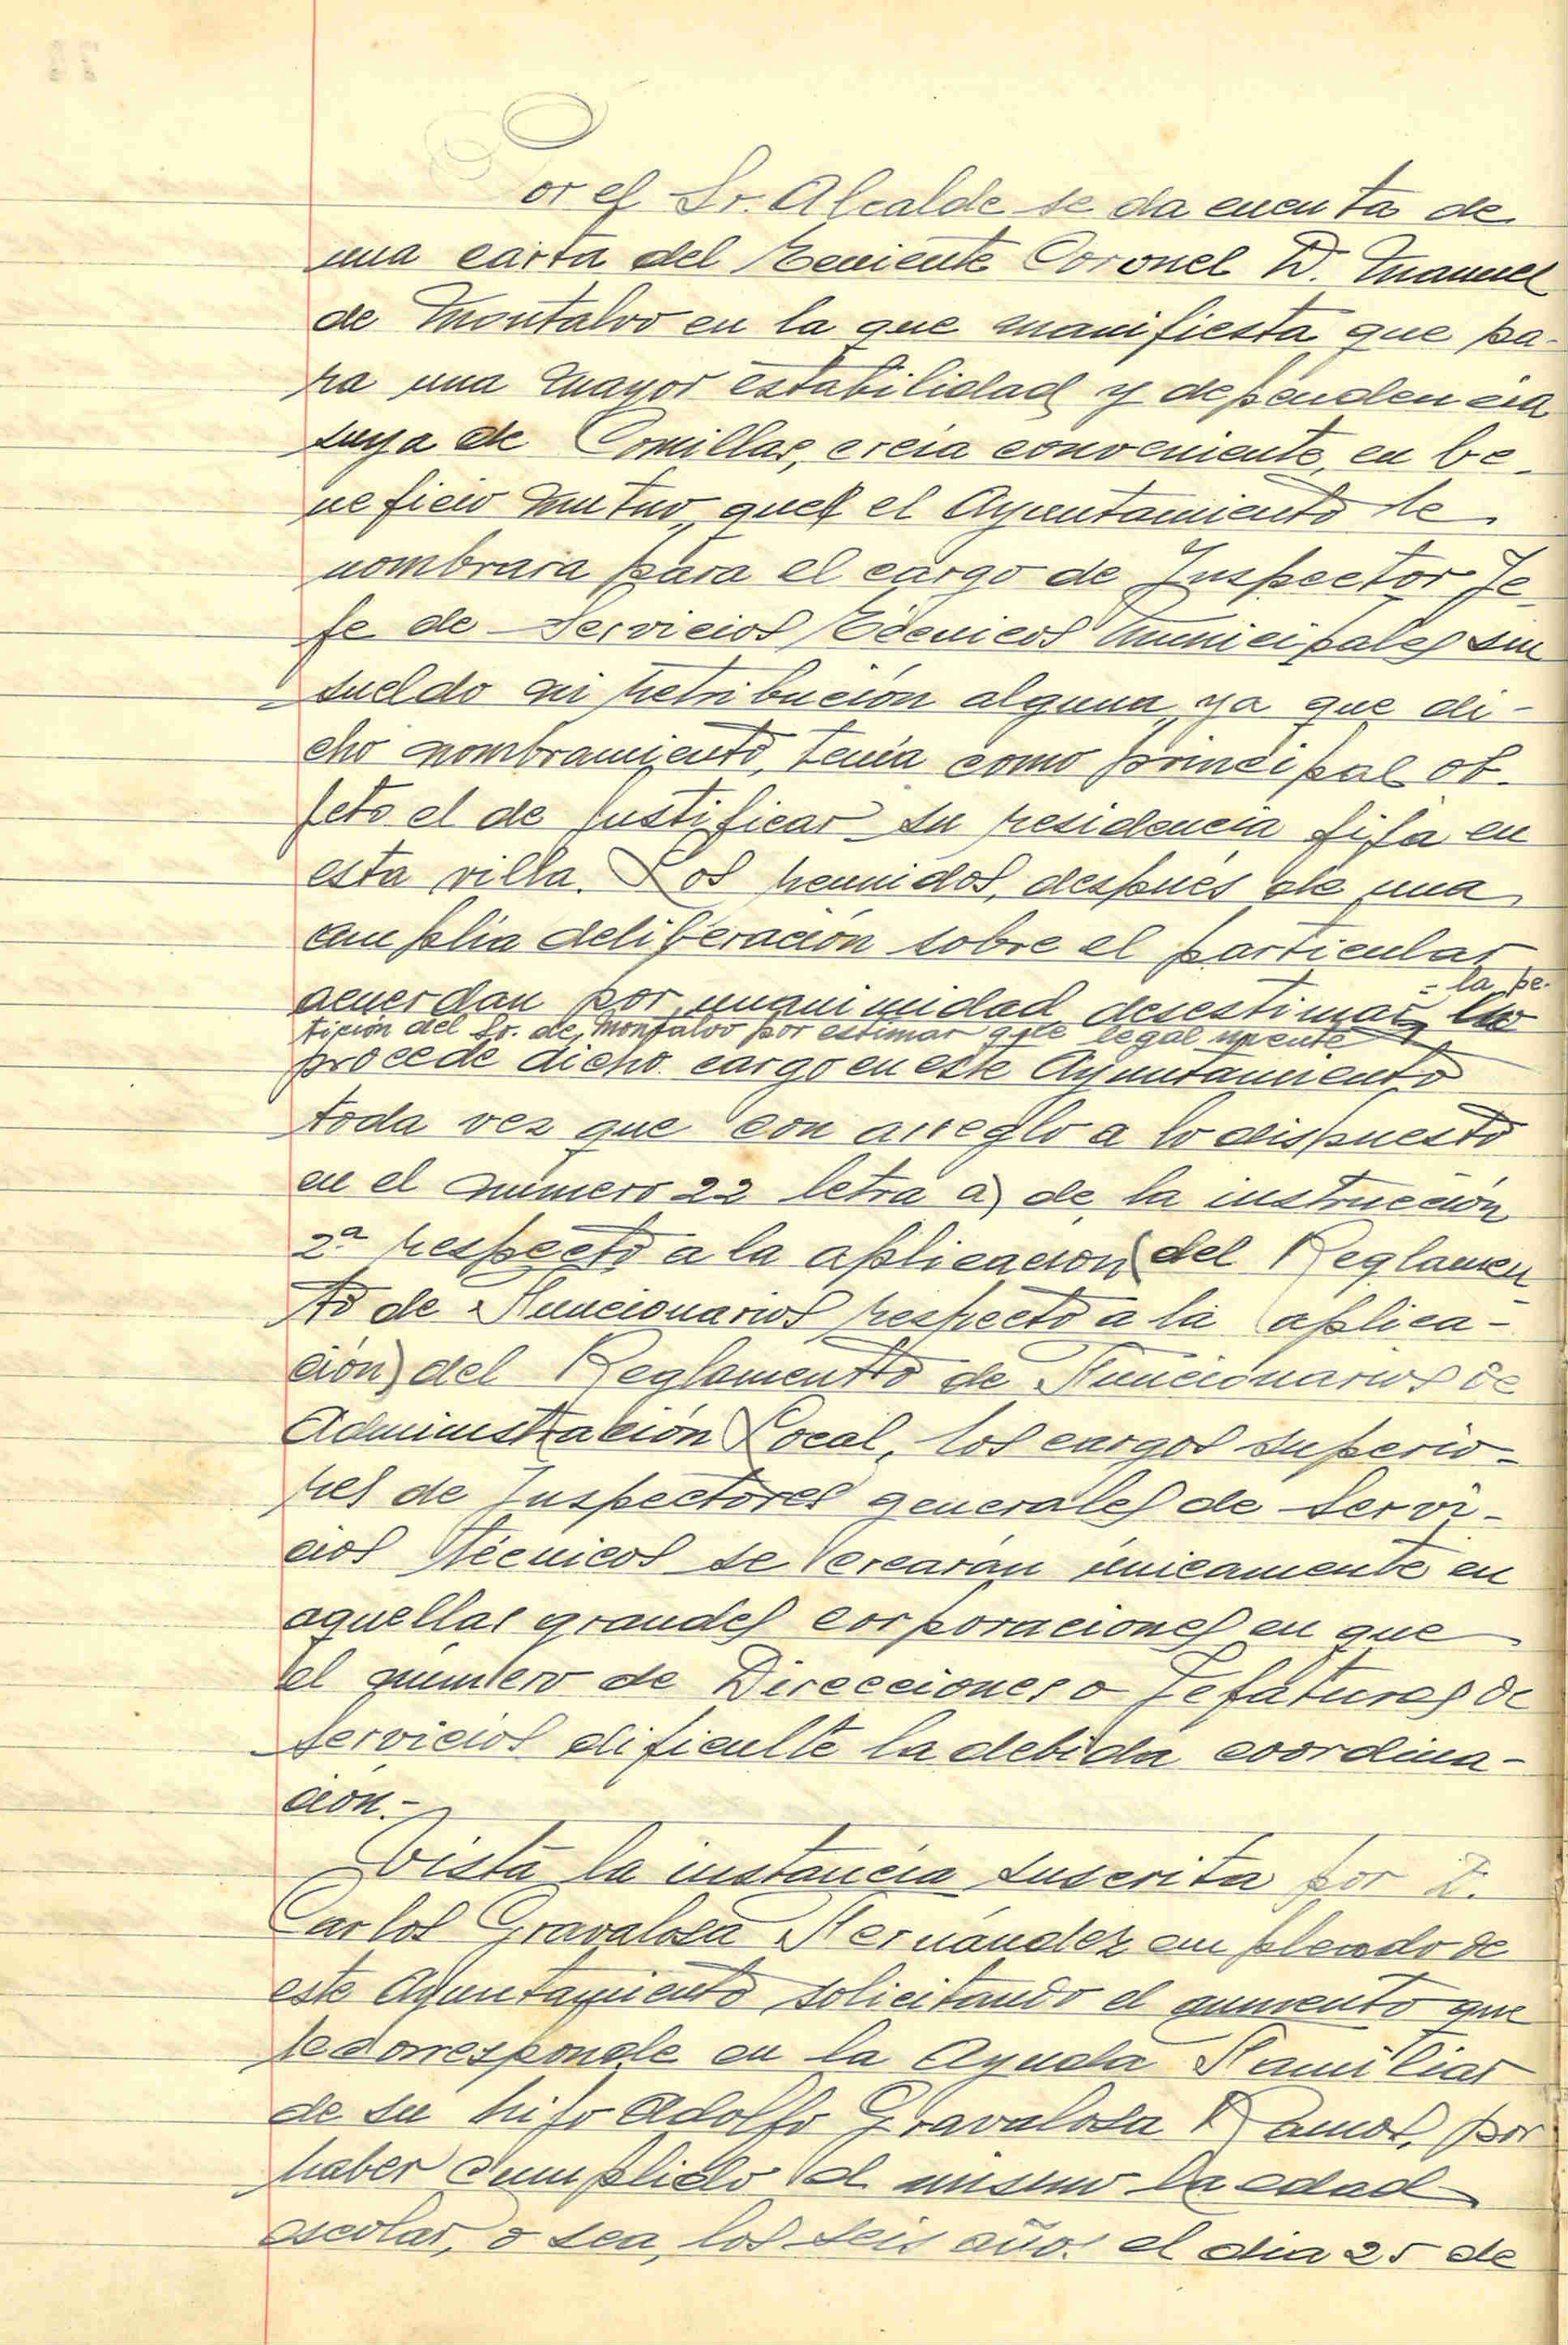 Por el Sr. Alcalde se da cuenta de
una carta del Teniente Coronel D. Manuel
de Montalvo en la que manifiesta que pa-
ra una mayor estabilidad y dependencia
suya de Comillas, creía conveniente, en be-
neficio mutuo, que el Ayuntamiento le
nombrara para el cargo de Inspector Je-
fe de Servicios Técnicos Municipales sin
sueldo ni retribución alguna, ya que di-
cho nombramiento, tenía como principal ob-
jeto el de justificar su residencia fija en
esta villa. Los reunidos, después de una
amplia deliberación sobre el particular
acuerdan por unanimidad desestimar = la pe-
tición del Sr. de Montalvo por estimar que legalmente no
procede dicho cargo en este Ayuntamiento
toda vez que con arreglo a lo dispuesto
en el número 22 letra a) de la instrucción
2ª respecto a la aplicación (del Reglamen-
to de Funcionarios respecto a la aplica-
ción) del Reglamento de Funcionarios de
Administración Local, los cargos superio-
res de Inspectores generales de Servi-
cios Técnicos se crearán únicamente en
aquellas grandes corporaciones en que
el número de Direcciones o Jefaturas de
servicios dificulte la debida coordina-
ción.-
Vista la instancia suscrita por D.
Carlos Gravalosa Hernández empleado de
este Ayuntamiento solicitando el aumento que
le corresponde en la Ayuda Familiar
de su hijo Adolfo Gravalosa Ramos, por
haber cumplido el mismo la edad
escolar, o sea, los seis años el día 25 de